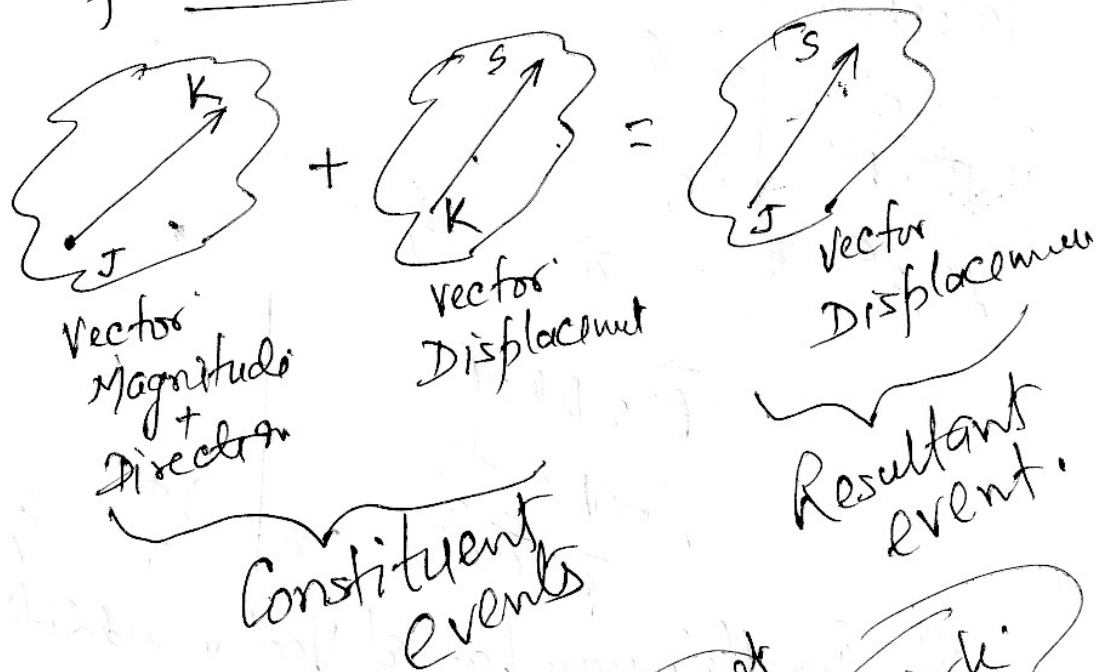 K
J
+
S
K
=
S
J
Vector
Magnitude
+
Direction
Vector
Displacemet
Vector
Displacement
Constituent
events
Resultant
event.